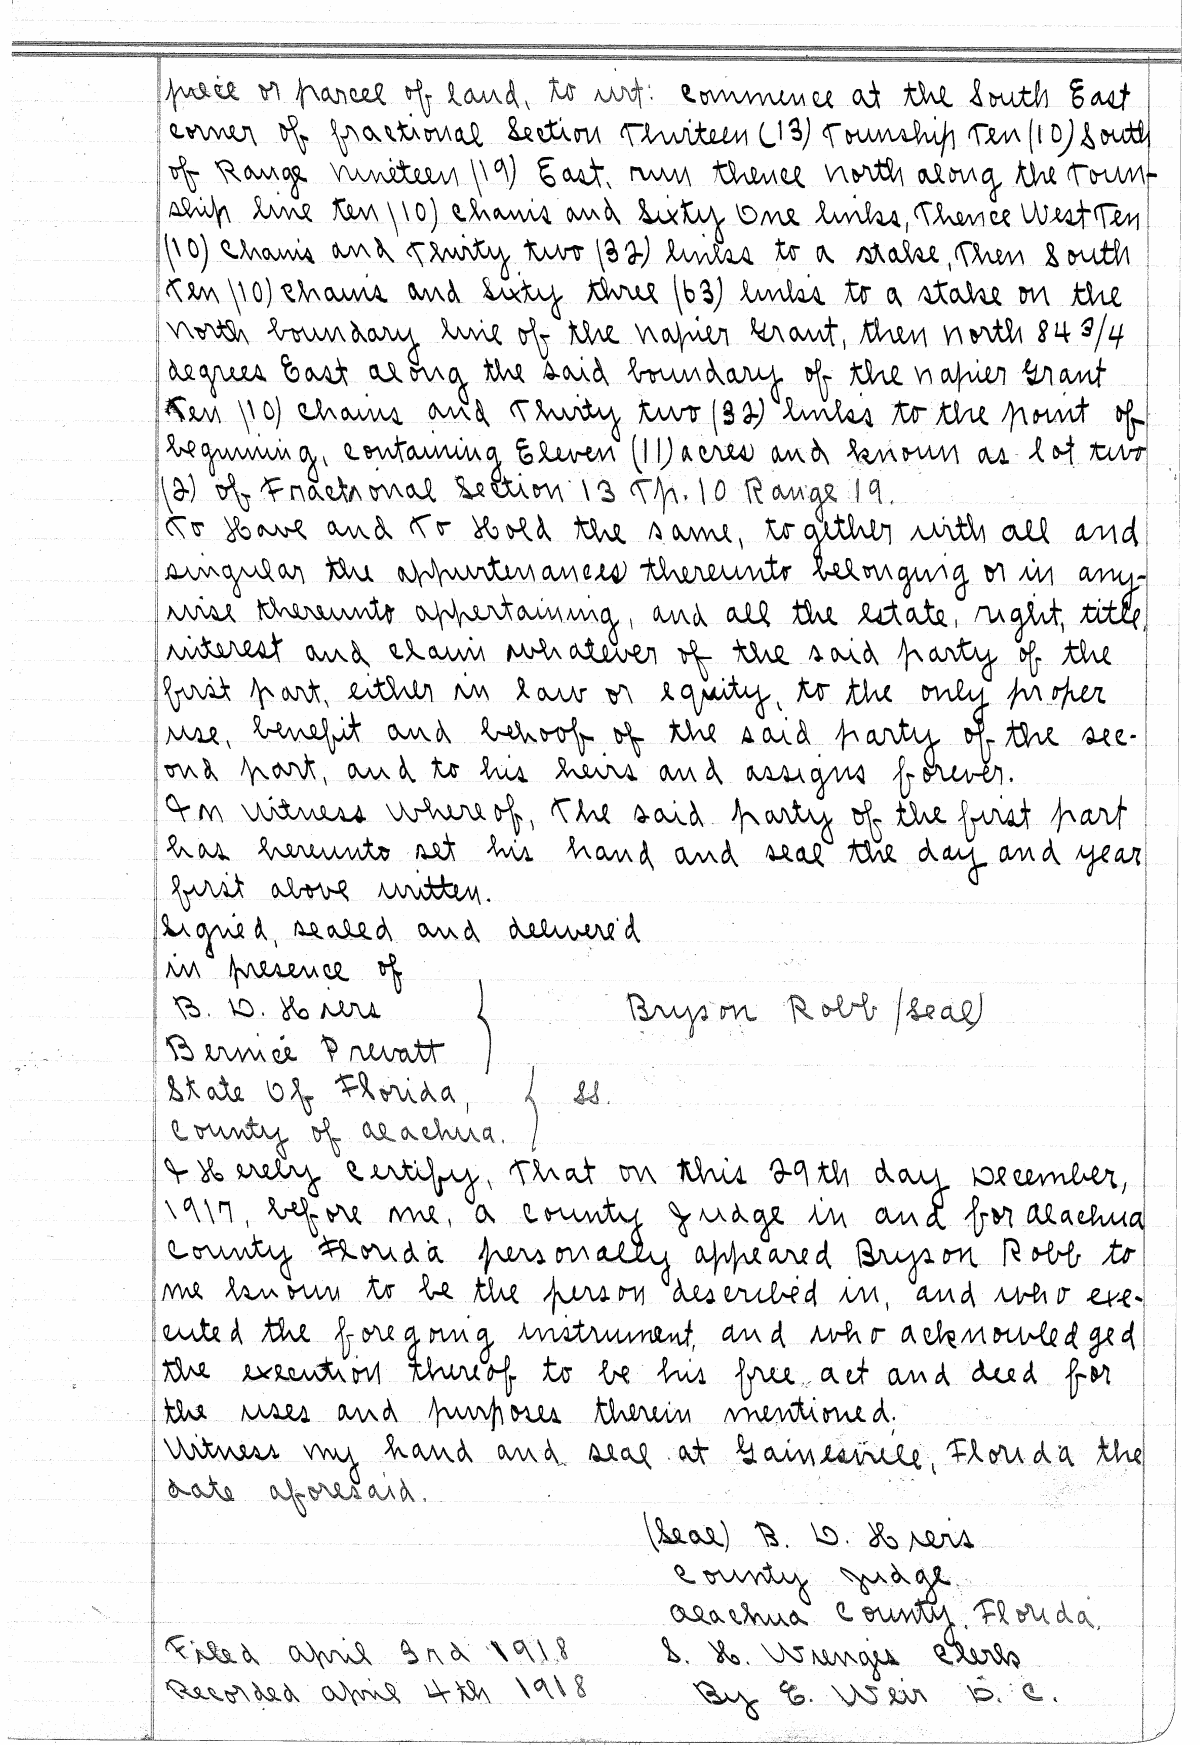 piece or parcel of land, to wit: commence at the South East
corner of fractional Section Thirteen (13) Township Ten (10) South
of Range nineteen (19) East, run thence north along the Town-
ship line ten (10) chains and Sixty One links, Thence West Ten
(10) Chains and Thirty two (32) links to a stake, Then South
Ten (10) chains and Sixty three (63) links to a stake on the
north boundary line of the napier Grant, then north 84 3/4
degrees East along the said boundary of the napier Grant
Ten (10) chains and Thirty two (32) links to the point of
beginning, containing Eleven (11) acres and known as lot two
(2) of Fractional Section 13 Tp. 10 Range 19.
To Have and To Hold the same, together with all and
singular the appurtenances thereunto belonging or in any-
wise thereunto appertaining, and all the estate, right, title,
interest and claim whatever of the said party of the
first part, either in law or equity, to the only proper
use, benefit and behoof of the said party of the sec-
ond part, and to his heirs and assigns forever.
In Witness Whereof, The said party of the first part
has hereunto set his hand and seal the day and year
first above written.
Signed, sealed and delivered
in presence of
B. D. Hiers
Bryson Robb (Seal)
Bernice Prevatt
State Of Florida,
SS.
County of Alachua.
I Herely Certify, That on this 29th day December,
1917, before me, a county Judge in and for Alachua
County Florida personally appeared Bryson Robb to
me known to be the person described in, and who exe-
cuted the foregoing instrument, and who acknowledged
the execution thereof to be his free act and deed for
the uses and purposes therein mentioned.
Witness my hand and seal at Gainesville, Florida the
date aforesaid.
(Seal) B. D. Hiers
County Judge
Alachua County, Florida.
Filed April 3rd 1918
S. H. Wienges Clerk
Recorded April 4th 1918
By E. Weir D. C.